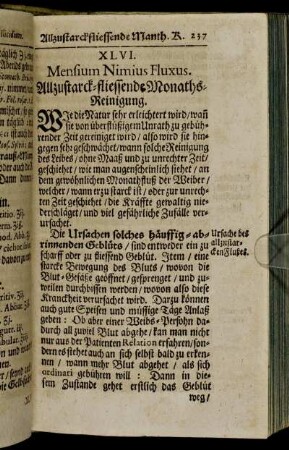 Allzustarckfliessende Manth. K. 237
XLVI.
Mensium Nimius Fluxus.
Allzustarck-fliessende Monaths-
Reinigung.
Wie die Natur sehr erleichtert wird/wañ
sie von überflüßigem Unrath zu gebüh-
render Zeit gereiniget wird/ also wird sie hin
gegen sehr geschwächet/wann solche Reinigung
des Leibes/ ohne Maaß und zu unrechter Zeit/
geschiehet/ wie man augenscheinlich siehet/ an
dem gewöhnlichen Monathfluß der Weiber/
welcher/ wann er zu starck ist/ oder zur unrech-
ten Zeit geschiehet/ die Kräffte gewaltig nie
derschläget/ und viel gefährliche Zufälle ver-
ursachet.
Die Ursachen solches häuffig-ab-
rinnenden Geblüts/ sind entweder ein zu
scharff oder zu fliessend Geblüt. Item/ eine
starcke Bewegung des Bluts/ wovon die
Blut-Gefäße geöffnet/ gesprenget/ und zu-
weilen durchbissen werden/ wovon also diese
Kranckheit verursachet wird. Darzu können
auch gute Speisen und müssige Tage Anlaß
geben: Ob aber einer Weibs-Persohn da-
durch all zuviel Blut abgehe/ kan man nicht
nur aus der Patienten Relation erfahren/son-
dern es stehet auch an sich selbst bald zu erken-
nen/ wann mehr Blut abgehet/ als sich
ordinari gebühren will: Dann in die-
sem Zustande gehet erstlich das Geblüt
weg/
Ursache des
allzustar-
cken Flußes.